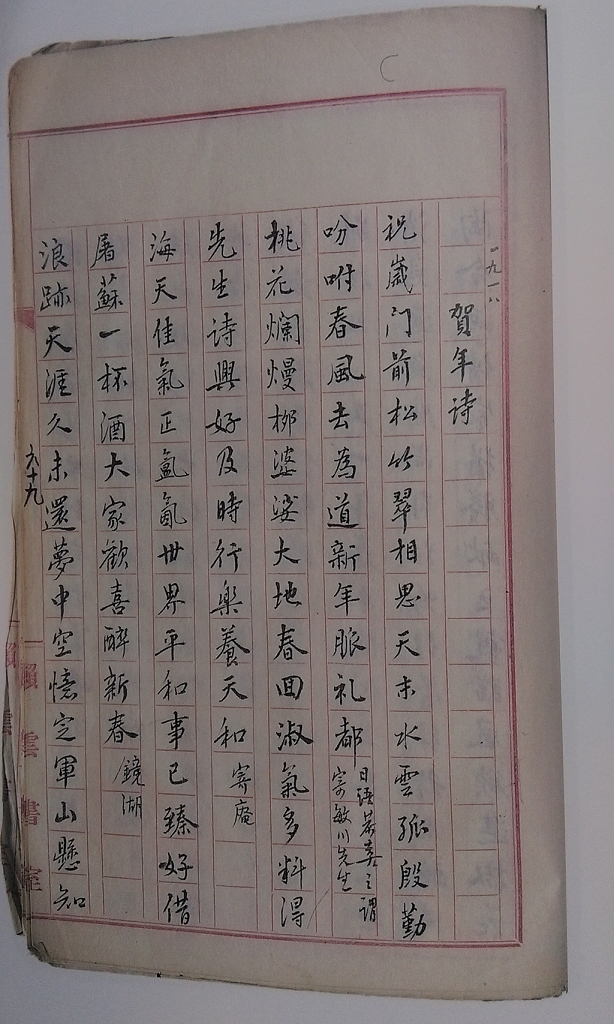 一九一八
賀年诗
祝嵗门前松竹翠相思天末水雲孤殷勤
吩咐春風去為道新年脤礼都
日語恭喜之謂
寄敏川先生
桃花爛熳栁婆娑大地春回淑氣多料得
先生诗興好及時行樂養天和 寄庵
海天佳氣正氤氳世界平和事已臻好借
屠蘇一杯酒大家歡喜醉新春 鏡湖
浪跡天涯久未還夢中空憶定軍山懸知
六十九
雲書室